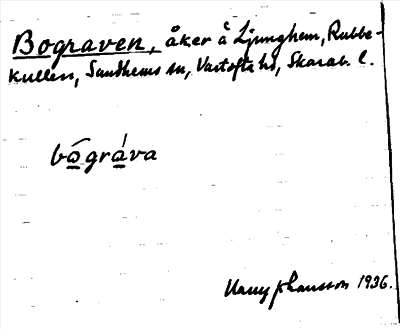 Bograven, åker å Ljunghem, Rubbe-
kullen, Sandhems sn, Vartofta hd, Skarab. l.
bo̲gra̲va
Harry Johansson 1936.